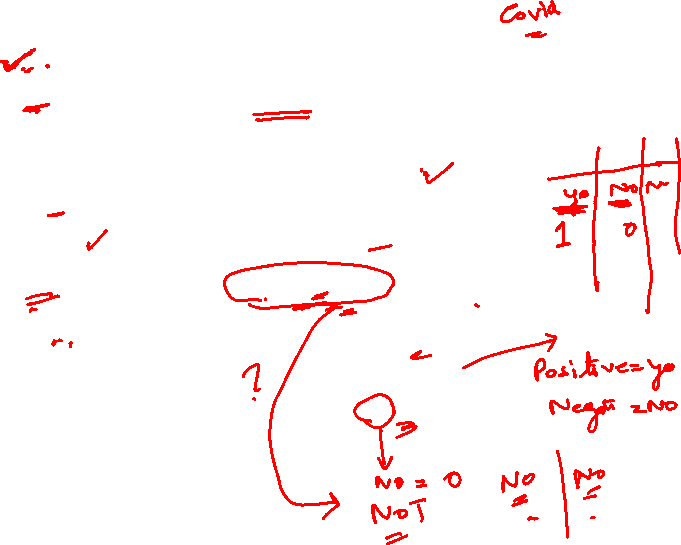 Covid
yo No N
1 0
?
Positive=yo
Negati =NO
No = 0 No No
NOT